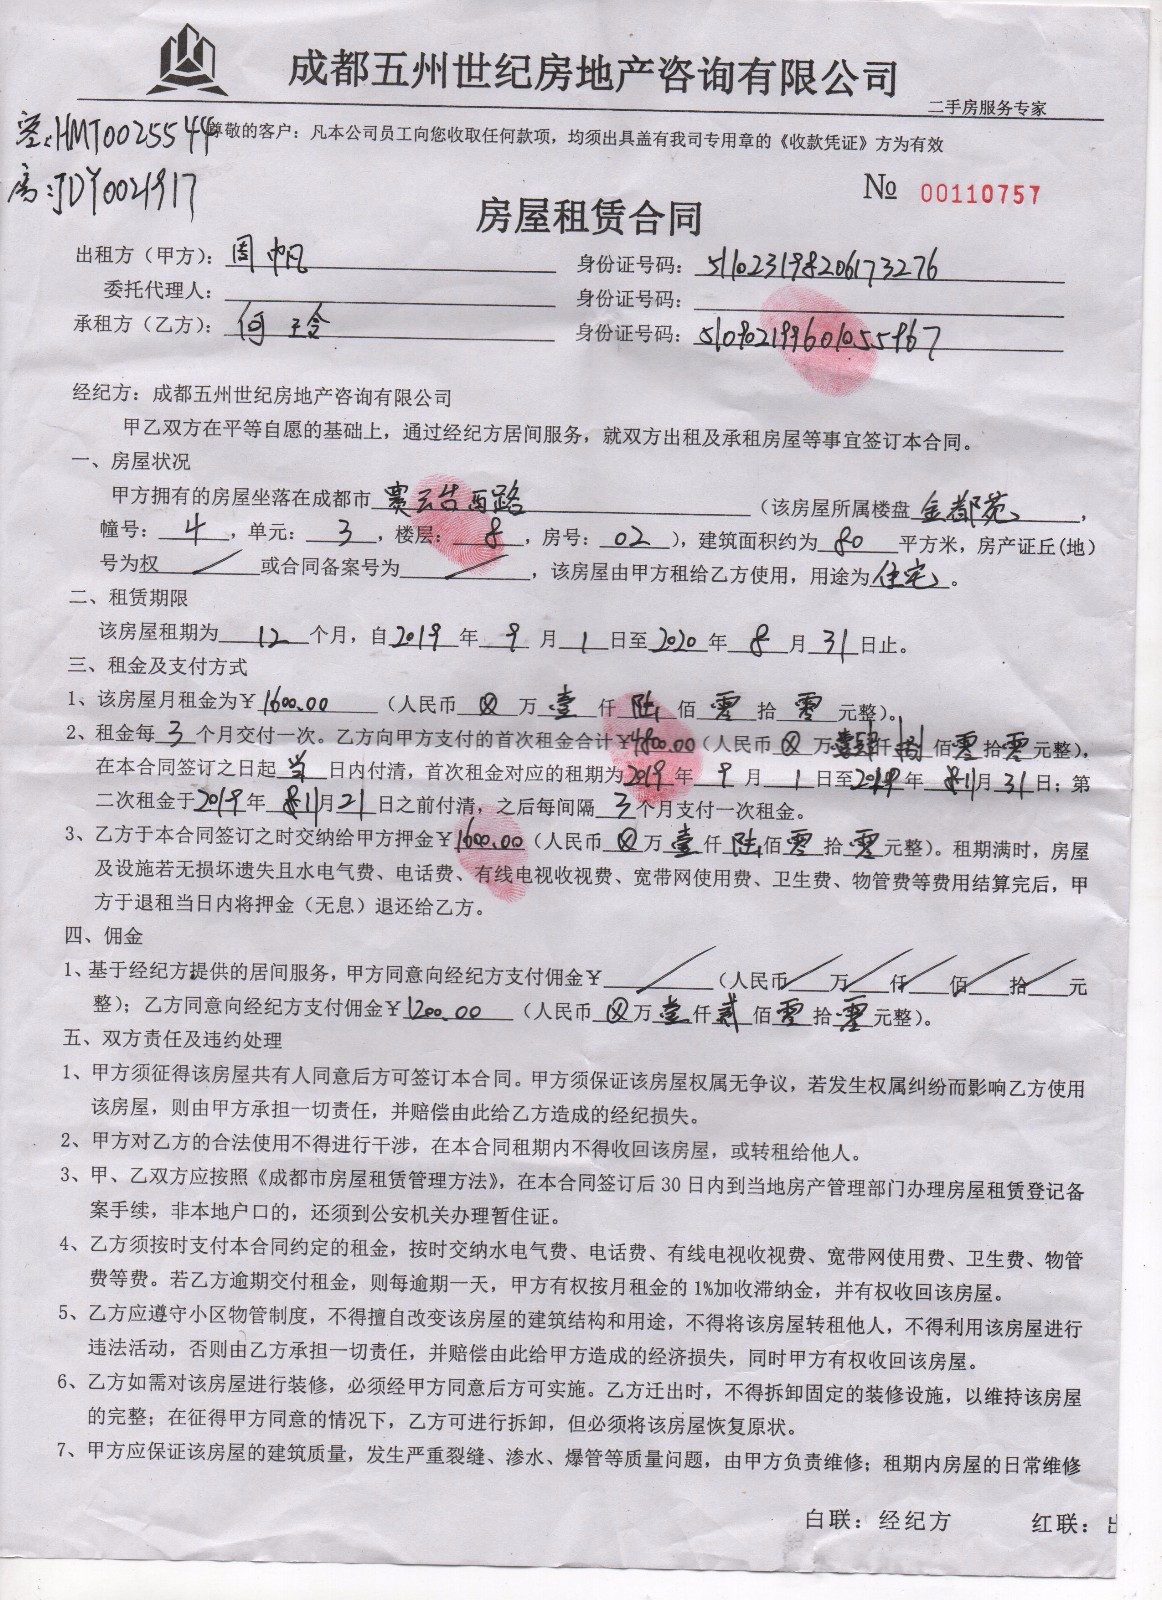 成都五州世纪房地产咨询有限公司
二手房服务专家
客:HMT0025544
尊敬的客户：凡本公司员工向您收取任何款项，均须出具盖有我司专用章的《收款凭证》方为有效
房:JDY0021917
№ 00110757
房屋租赁合同
出租方（甲方）：周帆 身份证号码：511023198206173276
委托代理人： 身份证号码：
承租方（乙方）：何 玲 身份证号码：
经纪方：成都五州世纪房地产咨询有限公司
甲乙双方在平等自愿的基础上，通过经纪方居间服务，就双方出租及承租房屋等事宜签订本合同。
一、房屋状况
甲方拥有的房屋坐落在成都市 西路 （该房屋所属楼盘 金都苑 ，
幢号： 4 ，单元： 3 ，楼层： 8 ，房号： 02 ），建筑面积约为 80 平方米，房产证丘(地)
号为权 / 或合同备案号为 / ，该房屋由甲方租给乙方使用，用途为 住宅 。
二、租赁期限
该房屋租期为 12 个月，自 2019 年 9 月 1 日至 2020 年 8 月 31 日止。
三、租金及支付方式
1、该房屋月租金为￥1600.00 （人民币 ⊗ 万 壹 仟 陆 佰 零 拾 零 元整）。
2、租金每 3 个月交付一次。乙方向甲方支付的首次租金合计￥4800.00（人民币 ⊗ 万 肆 仟 捌 佰 零 拾 零 元整），
在本合同签订之日起 当 日内付清，首次租金对应的租期为 2019 年 9 月 1 日至 2019 年 11 月 31 日；第
二次租金于 2019 年 11 月 21 日之前付清，之后每间隔 3 个月支付一次租金。
3、乙方于本合同签订之时交纳给甲方押金￥1600.00（人民币 ⊗ 万 壹 仟 陆 佰 零 拾 零 元整）。租期满时，房屋
及设施若无损坏遗失且水电气费、电话费、有线电视收视费、宽带网使用费、卫生费、物管费等费用结算完后，甲
方于退租当日内将押金（无息）退还给乙方。
四、佣金
1、基于经纪方提供的居间服务，甲方同意向经纪方支付佣金￥ / （人民币 / 万 / 仟 / 佰 / 拾 / 元
整）；乙方同意向经纪方支付佣金￥1200.00 （人民币 ⊗ 万 壹 仟 贰 佰 零 拾 零 元整）。
五、双方责任及违约处理
1、甲方须征得该房屋共有人同意后方可签订本合同。甲方须保证该房屋权属无争议，若发生权属纠纷而影响乙方使用
该房屋，则由甲方承担一切责任，并赔偿由此给乙方造成的经纪损失。
2、甲方对乙方的合法使用不得进行干涉，在本合同租期内不得收回该房屋，或转租给他人。
3、甲、乙双方应按照《成都市房屋租赁管理方法》，在本合同签订后 30 日内到当地房产管理部门办理房屋租赁登记备
案手续，非本地户口的，还须到公安机关办理暂住证。
4、乙方须按时支付本合同约定的租金，按时交纳水电气费、电话费、有线电视收视费、宽带网使用费、卫生费、物管
费等费。若乙方逾期交付租金，则每逾期一天，甲方有权按月租金的 1%加收滞纳金，并有权收回该房屋。
5、乙方应遵守小区物管制度，不得擅自改变该房屋的建筑结构和用途，不得将该房屋转租他人，不得利用该房屋进行
违法活动，否则由乙方承担一切责任，并赔偿由此给甲方造成的经济损失，同时甲方有权收回该房屋。
6、乙方如需对该房屋进行装修，必须经甲方同意后方可实施。乙方迁出时，不得拆卸固定的装修设施，以维持该房屋
的完整；在征得甲方同意的情况下，乙方可进行拆卸，但必须将该房屋恢复原状。
7、甲方应保证该房屋的建筑质量，发生严重裂缝、渗水、爆管等质量问题，由甲方负责维修；租期内房屋的日常维修
白联：经纪方 红联：出